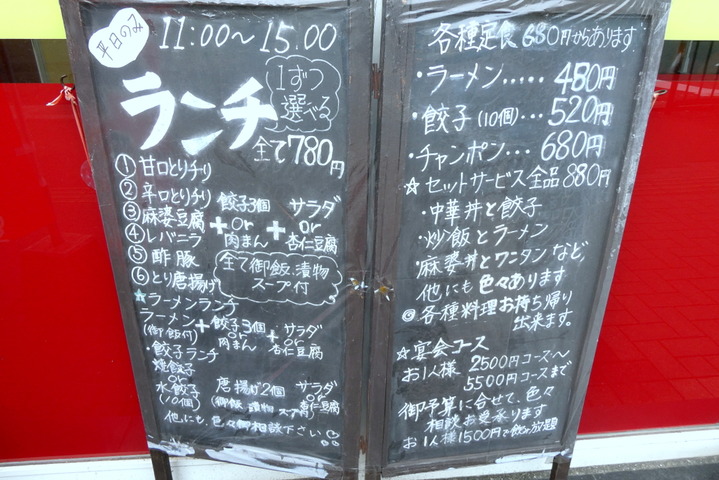 平日のみ
11:00～15.00
ランチ
1ずつ
選べる
全て780円
①甘口とりチリ
②辛口とりチリ
③麻婆豆腐
④レバニラ
⑤酢豚
⑥とり唐揚げ
餃子3個 サラダ
+or+or
肉まん 杏仁豆腐
全て御飯漬物
スープ付
☆ラーメンランチ
ラーメン+餃子3個+サラダ
(御飯付) or or
肉まん 杏仁豆腐
・餃子ランチ
焼餃子 唐揚げ2個 サラダ
or or
水餃子 (御飯 漬物 スープ付) 杏仁豆腐
(10個)
他にも色々御相談下さい
各種定食680円からあります
・ラーメン.....480円
・餃子(10個)...520円
・チャンポン...680円
☆セットサービス全品880円
・中華丼と餃子
・炒飯とラーメン
・麻婆丼とワンタンなど,
他にも色々あります
◎各種料理お持ち帰り
出来ます。
☆宴会コース
お1人様 2500円コース～
5500円コースまで
御予算に合せて、色々
相談お受承ります
お1人様1500円で飲み放題